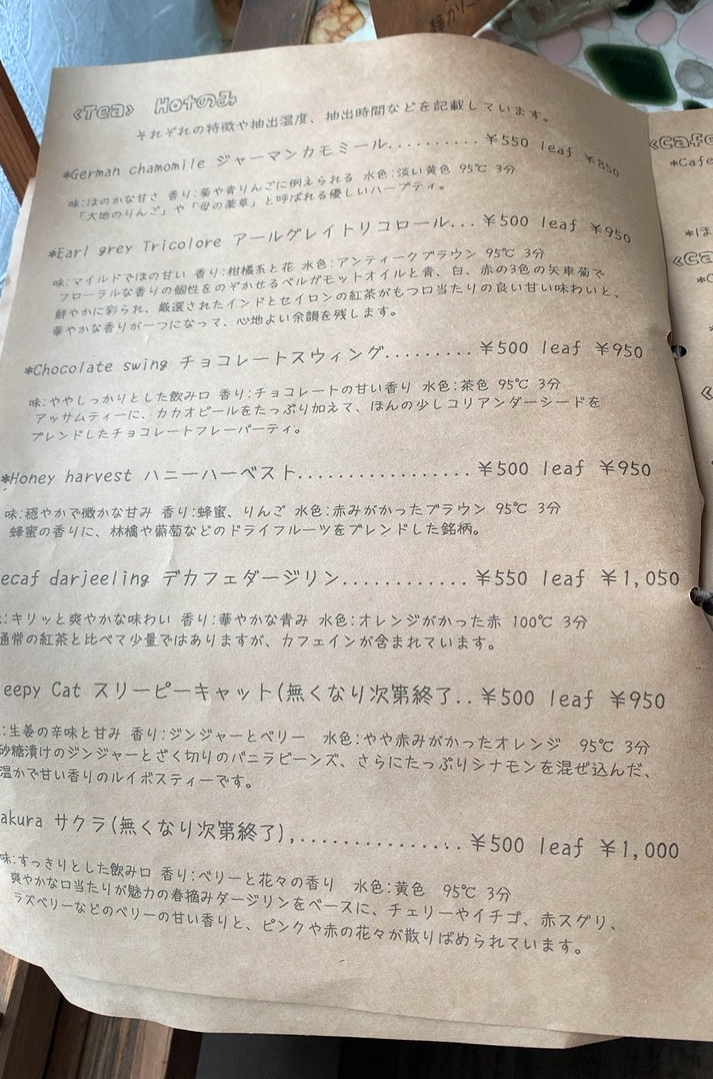 静かに
<Tea> Hotのみ
それぞれの特徴や抽出温度、抽出時間などを記載しています。
*German chamomile ジャーマンカモミール.......... ¥550 leaf ¥850
味:ほのかな甘さ 香り:菊や青りんごに例えられる 水色:淡い黄色 95℃ 3分
「大地のりんご」や「母の薬草」と呼ばれる優しいハーブティ。
*Earl grey Tricolore アールグレイトリコロール... ¥500 leaf ¥950
味:マイルドでほの甘い 香り:柑橘系と花 水色:アンティークブラウン 95℃ 3分
フローラルな香りの個性をのぞかせるベルガモットオイルと青、白、赤の3色の矢車菊で
鮮やかに彩られ、厳選されたインドとセイロンの紅茶がもつ口当たりの良い甘い味わいと、
華やかな香りが一つになって、心地よい余韻を残します。
*Chocolate swing チョコレートスウィング......... ¥500 leaf ¥950
味:ややしっかりとした飲み口 香り:チョコレートの甘い香り 水色:茶色 95℃ 3分
アッサムティーに、カカオピールをたっぷり加えて、ほんの少しコリアンダーシードを
ブレンドしたチョコレートフレーバーティ。
*Honey harvest ハニーハーベスト................. ¥500 leaf ¥950
味:穏やかで微かな甘み 香り:蜂蜜、りんご 水色:赤みがかったブラウン 95℃ 3分
蜂蜜の香りに、林檎や葡萄などのドライフルーツをブレンドした銘柄。
ecaf darjeeling デカフェダージリン............ ¥550 leaf ¥1,050
:キリッと爽やかな味わい 香り:華やかな青み 水色:オレンジがかった赤 100℃ 3分
通常の紅茶と比べて少量ではありますが、カフェインが含まれています。
eepy Cat スリーピーキャット(無くなり次第終了.. ¥500 leaf ¥950
:生姜の辛味と甘み 香り:ジンジャーとベリー 水色:やや赤みがかったオレンジ 95℃ 3分
砂糖漬けのジンジャーとざく切りのバニラビーンズ、さらにたっぷりシナモンを混ぜ込んだ、
温かで甘い香りのルイボスティーです。
akura サクラ(無くなり次第終了),............... ¥500 leaf ¥1,000
味:すっきりとした飲み口 香り:ベリーと花々の香り 水色:黄色 95℃ 3分
爽やかな口当たりが魅力の春摘みダージリンをベースに、チェリーやイチゴ、赤スグリ、
ラズベリーなどのベリーの甘い香りと、ピンクや赤の花々が散りばめられています。
<Cafe
*Cafe
*1は
<Ca